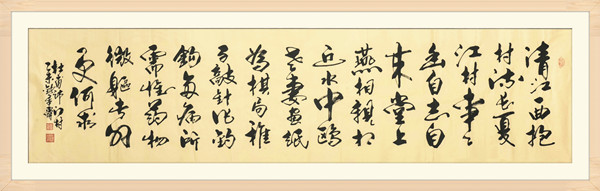 清江一曲抱
村流長夏
江村事々
幽自去自
来堂上
燕相親相
近水中鷗
老妻畫紙
為棋局稚
子敲針作釣
鉤多病所
需惟藥物
微軀此外
更何求
杜甫詩江村
乙未